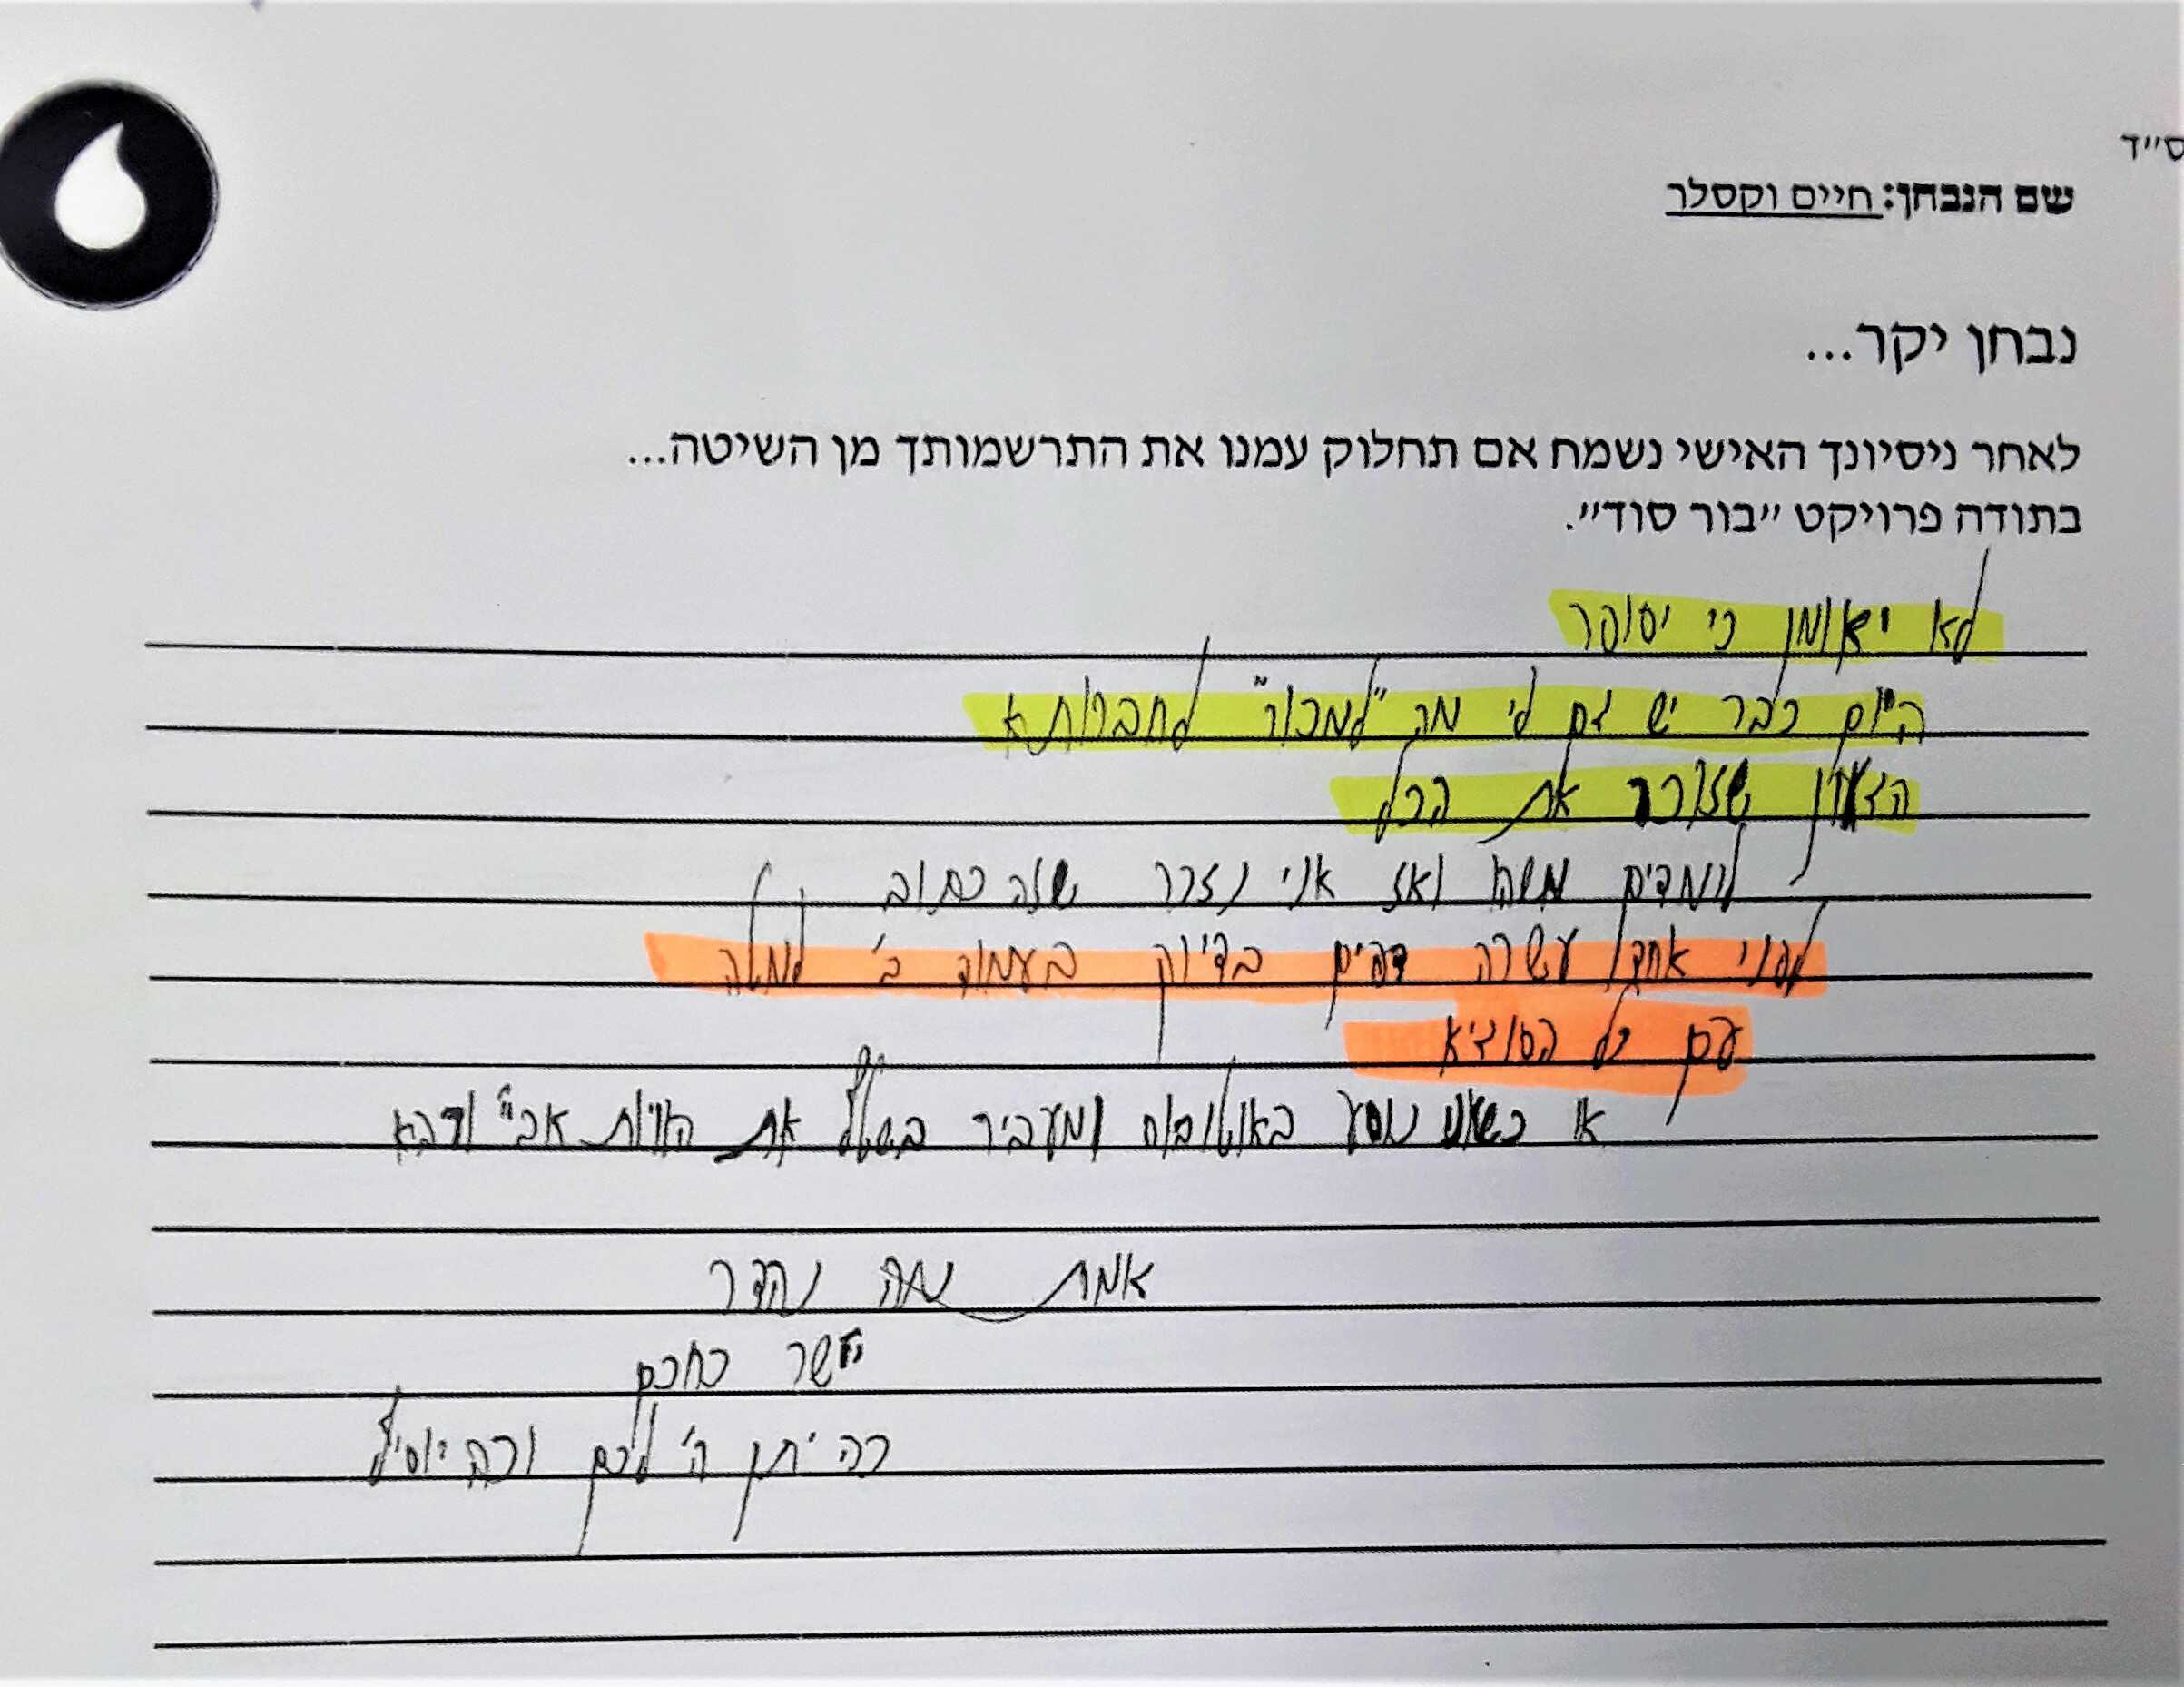 ס״ד
שם הנבחן: חיים וקסלר
נבחן יקר...
לאחר ניסיונך האישי נשמח אם תחלוק עמנו את התרשמותך מן השיטה...
בתודה פרויקט ״בור סוד״.
לא יאומן כי יסופר
היום כבר יש גם לי מה "למכור" לחברותא
הגאון שזוכר את הכל
לומדים משהו ואז אני נזכר שזה כתוב
לפני אחד עשרה דפים בדיוק בעמוד ב' למעלה
עם כל הסוגיא
או כשאני נוסע באוטובוס ומעביר בשכל את הויות אביי ורבא
אמת נהדר
יישר כחכם
כה יתן ה' לכם וכה יוסיף